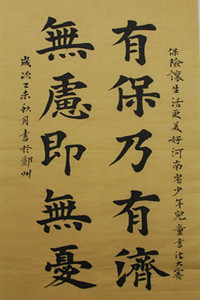 保險讓生活更美好河南省少年兒童書法大賽
有保乃有濟
無慮即無憂
歲次乙未秋月書於鄭州